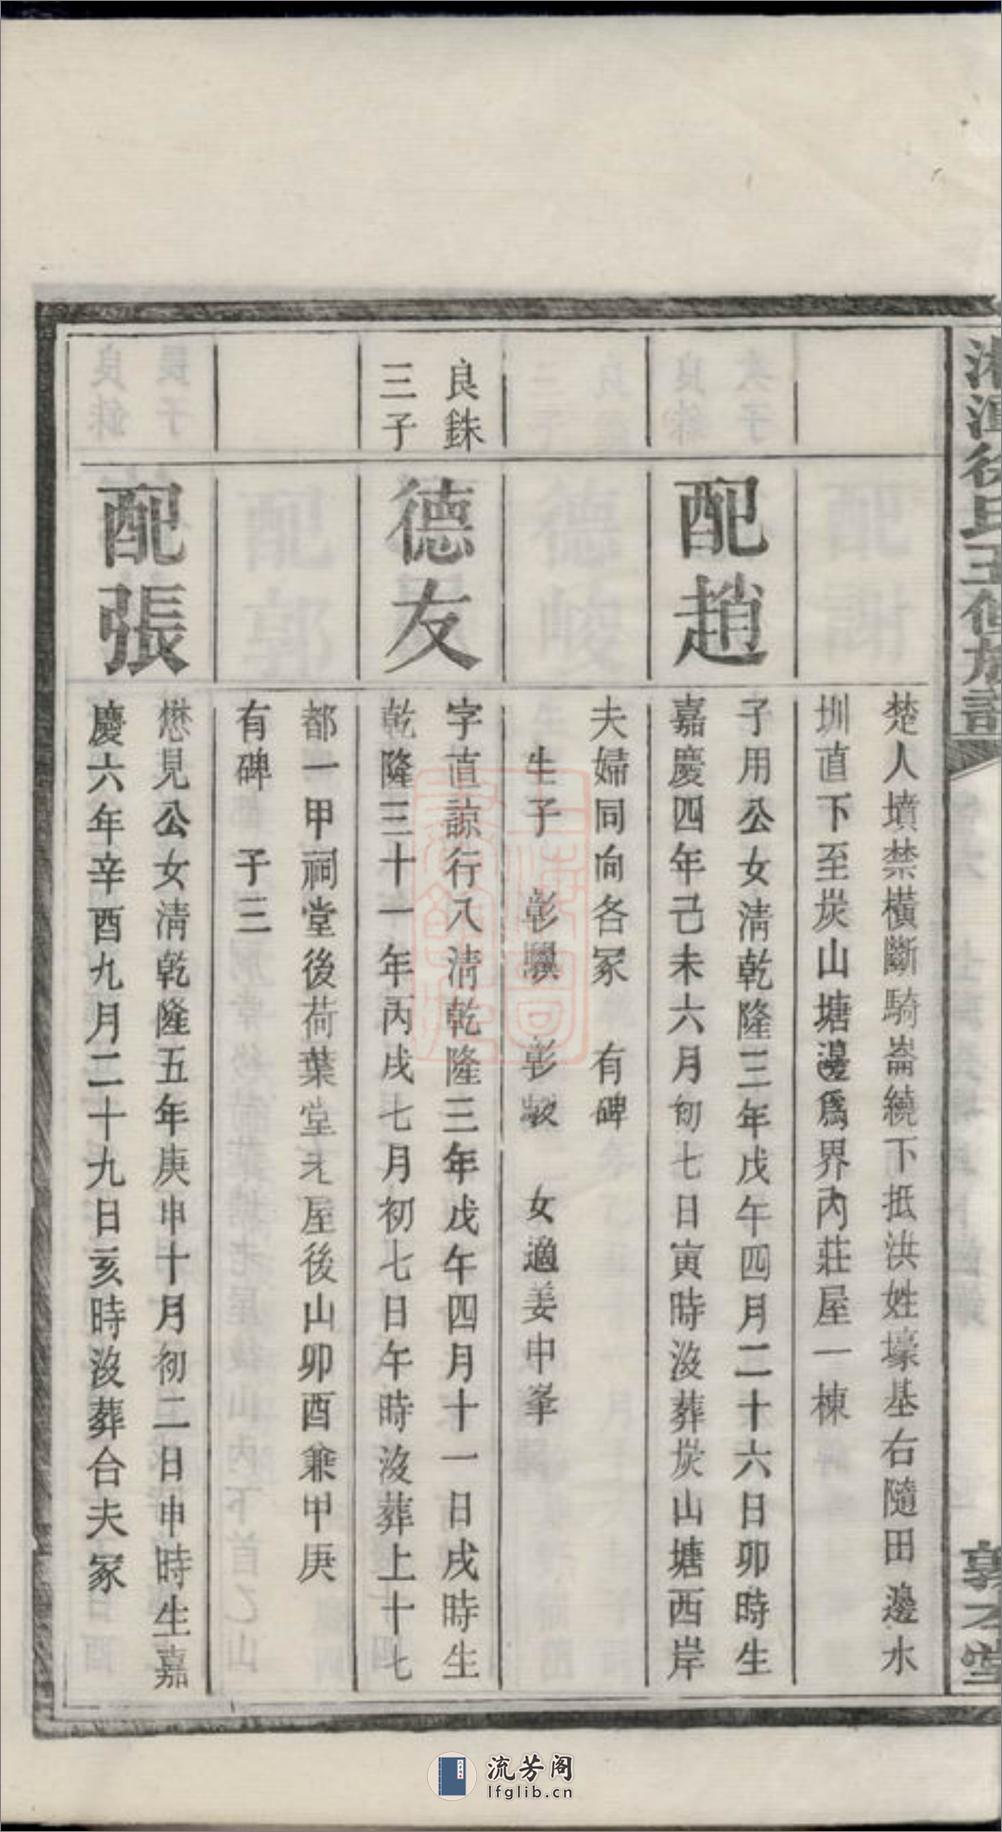 湘潭徐氏五修族譜
敦本堂
楚人墳禁橫斷騎崙繞下抵洪姓壕基右隨田邊水
圳直下至炭山塘邊爲界內莊屋一棟
配趙
子用公女淸乾隆三年戊午四月二十六日卯時生
嘉慶四年己未六月初七日寅時沒葬炭山塘西岸
夫婦同向各冢 有碑
生子 彰驥 彰 女適姜申峯
良銖
三子
德友
字直諒行八淸乾隆三年戊午四月十一日戌時生
乾隆三十一年丙戌七月初七日午時沒葬上十七
都一甲祠堂後荷葉堂老屋後山卯酉兼甲庚
有碑 子三
配張
懋見公女淸乾隆五年庚申十月初二日申時生嘉
慶六年辛酉九月二十九日亥時沒葬合夫冢
流芳阁
lfglib.cn